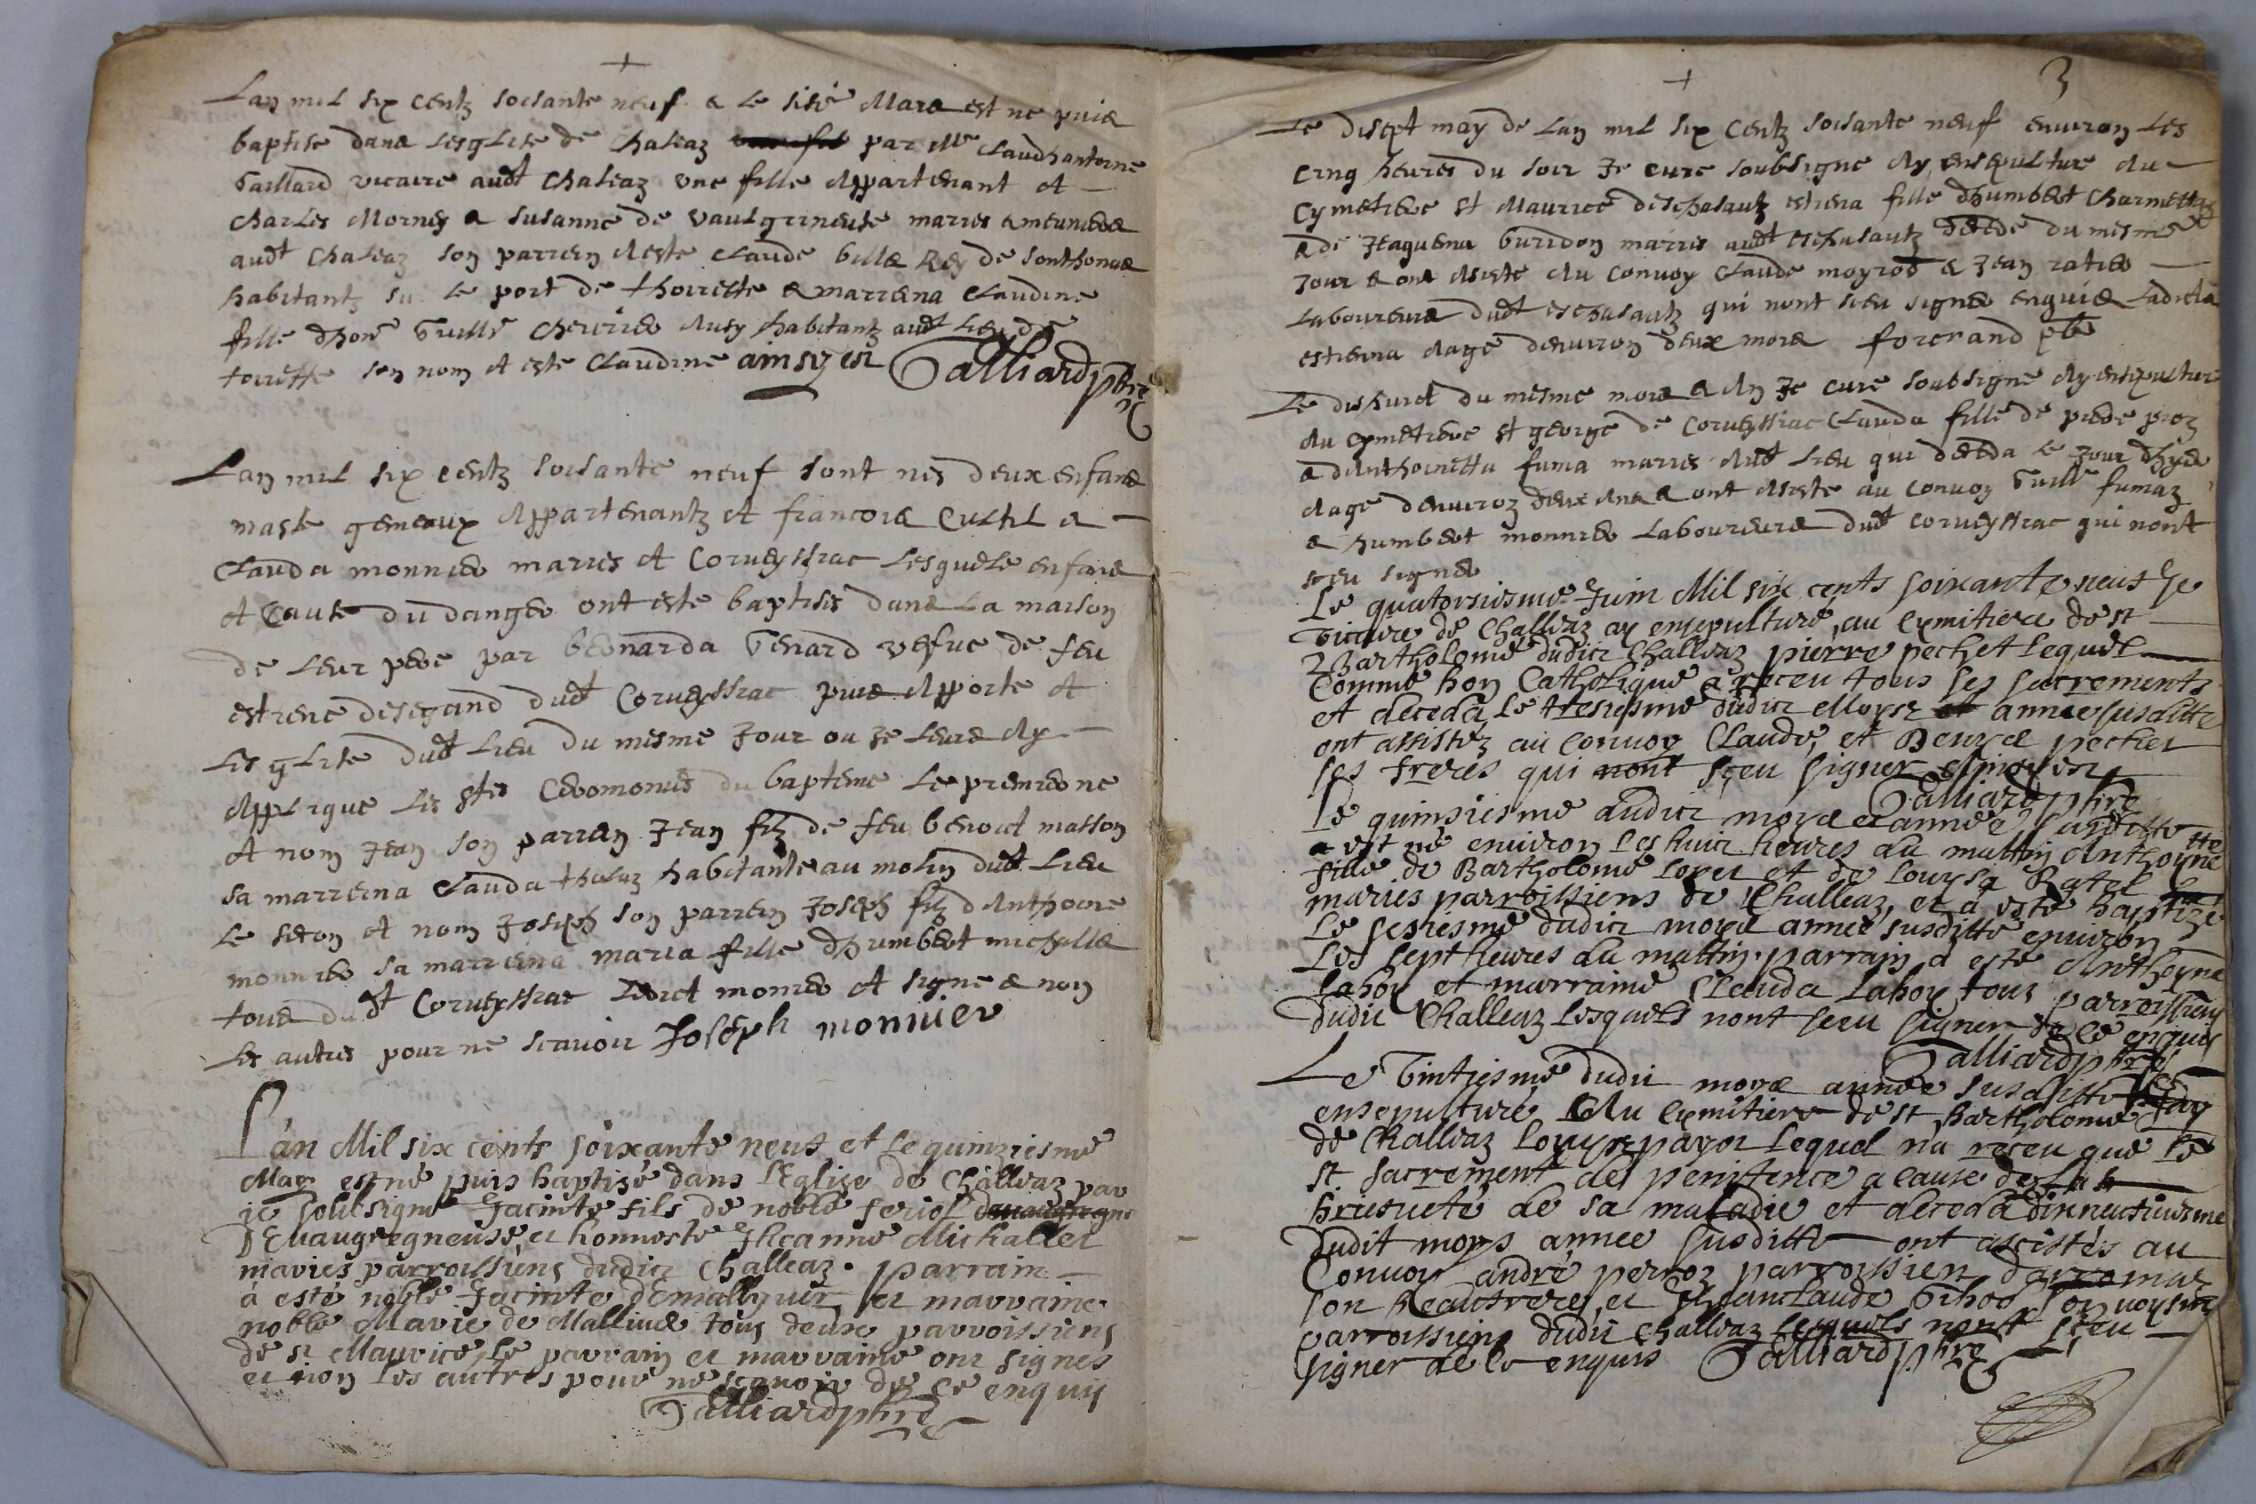 Lan mil six centz soisante neuf & le sisie Mars est ne puis
baptise dans lesglise de Chaleaz par Mre Claudhantoine
Gaillard vicaire audt Chaleaz une fille Appartenant A
Charles Morney & Susanne de Vaulgrineuse maries & meuniers
audt Chaleaz son parrein A este Claude bille Rey de Sonthonas
habitantz su le port de thoirette & marreina Claudine
fille dhon Guille Chevrier Ausy habitantz audt lieu de
toirette son nom A este Claudine ainsy est Galliard pbre
Lan mil six centz soisante neuf sont nes deux enfans
masle gemeaux Appartenantz A francois Cultil &
Clauda monnier maries A Corveyssiac lesquels enfans
A Cause du danger ont este baptises dans La maison
de leur pere par bernarda Genard vefve de feu
estiene desegand dudt Corveyssiac puis Apporte A
lesglise dudt Lieu du mesme Jour ou Je leurs Ay
Applique les stes Ceremonies du bapteme le premier ne
A nom Jean son parrein Jean filz de feu benoict masson
sa marreina Clauda thalaz habitante au molin dudt lieu
le secon A nom Joseph son parrein Joseph filz dAnthoine
monnier sa marreina maria fille dhumbert michalle
tous dudt Corveyssiac Ledict monier A signe & non
les autres pour ne scavoir Joseph monnier
L'an Mil six cents soixante neuf et le quinziesme
May est né puis baptizé dans l'Eglise de Challeaz par
je soubsigné Jacinte fils de noble feriol
D'Evaugregneuse et honneste Jheanne Michallet
mariés parroissiens dudict Challeaz. parrain
a esté noble Jacinte demallyver et marraine
noble Marie de Mallivers tous deux parroissiens
de st Maurice le parrain et marraine ont signés
et non les autres pour ne scavoir de ce enquis
Galliard pbre
3
Le disept may de Lan mil six centz soisante neuf environ les
cinq heures du soir Je cure soubsigne Ay ensepulture Au
Cymetiere st Maurice deschasautz estiena fille dhumbert Charmettaz
& de Jeaquema buridon maries audt eschasautz decede du mesme
Jour & ont Asiste Au Convoy Claude moyrod & Jean ratier
Laboureurs dudt eschasautz qui nont sceu signer enquis Ladicte
estiena Aage denviron deux mois forcrand pbre
Le dishuict du mesme mois & An Je cure soubsigne Ay ensepulture
Au Cymetiere st george de Corveyssiac Clauda fille de piere proz
& dAnthoinetta fuma maries Audt lieu qui deceda le Jour dhyer
Aage denviron deux Ans & ont Asiste au Convoy Guille fumaz
& humbert monnier Laboureurs dudt Corveyssiac qui nont
sceu signer
Le quatorsiesme Juin Mil six cents soixante neuf Je
Vicaire de Challeaz ay ensepulturé au Cymitiere de st
Bartholomé dudict Challeaz pierre pechet lequel
Comme bon Catholique a receu tous ses sacrements
et deceda le tresiesme dudict Moys annee susditte
ont assistez au Convoy Claude et Denys pechet
ses freres qui nont sçeu signer
Galliard pbre
Le quinsiesme dudict moys et annee susditte
est né environ les huict heures du mattin Anthoynette
fille de Bartholomé loret et de Louysa Ratel
mariés parroissiens de Challeaz et a esté baptizé
Le sesiesme dudict moys annee susditte environ
les sept heures du mattin. parrain a esté Antheyne
lahoy et marraine Clauda lahoy tous parroissiens
dudit Challeaz lesquels nont sceu signer de ce enquis
Galliard pbre
Le Vintiesme dudit moys annee susditte Jay
ensepulturé Au Cymitiere de st Bartholomé
de Challeaz Louys payot lequel n'a receu que le
st. sacrement de penitence a cause de la
briesueté de sa maladie et deceda dixneufiesme
dudit moys annee susditte ont assistés au
Convoy andré perroz parroissien darromas
son beaufrere et Jeanclaude son voysin
parroissiens dudit Challeaz lesquels nont sceu
signer de ce enquis Galliard pbre